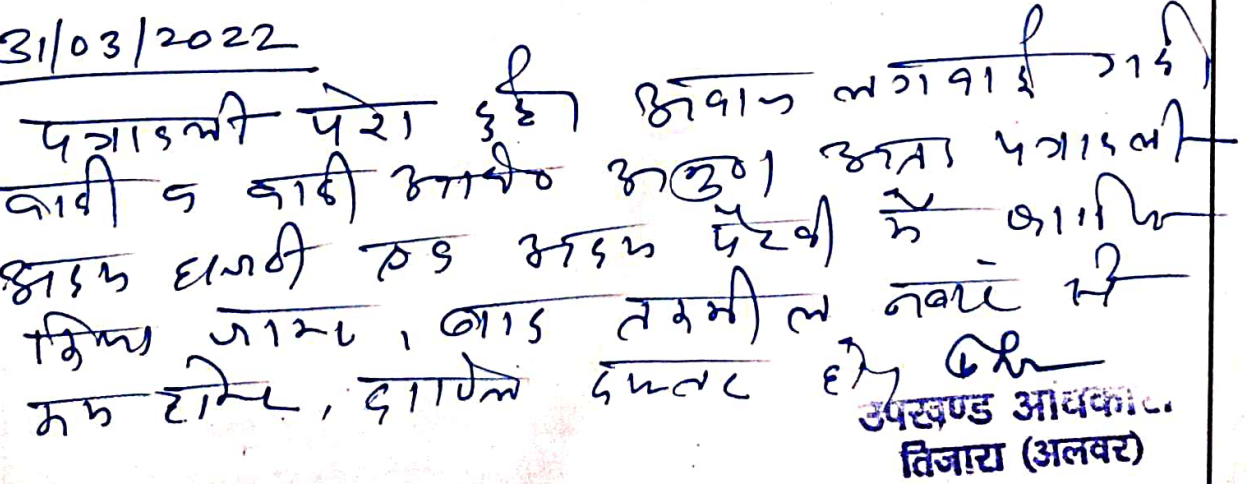 31/03/2022
पत्रावली पेश हुई। आवाज लगवाई गई।
वादी व वादी अतः पत्रावली
अदम हाजरी एवं अदम पैरवी में खारिज
किया जाये, बाद तकमील नम्बर से
कम होकर, दाखिल दफ्तर हो।
उपखण्ड अधिकारी
तिजारा (अलवर)